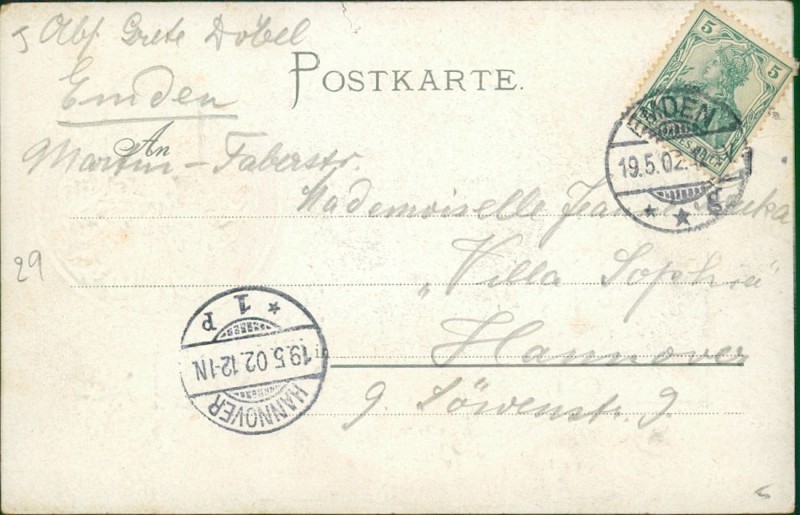 Abs. Grete Döbel
POSTKARTE.
Emden
An
Martin-Faberstr.
Mademoiselle
„Villa Sophia“
Hannover
9. Löwenstr. 9.
29
5
5
EMDEN
19.5.02.
HANNOVER
19.5.02.12-1N
1 P